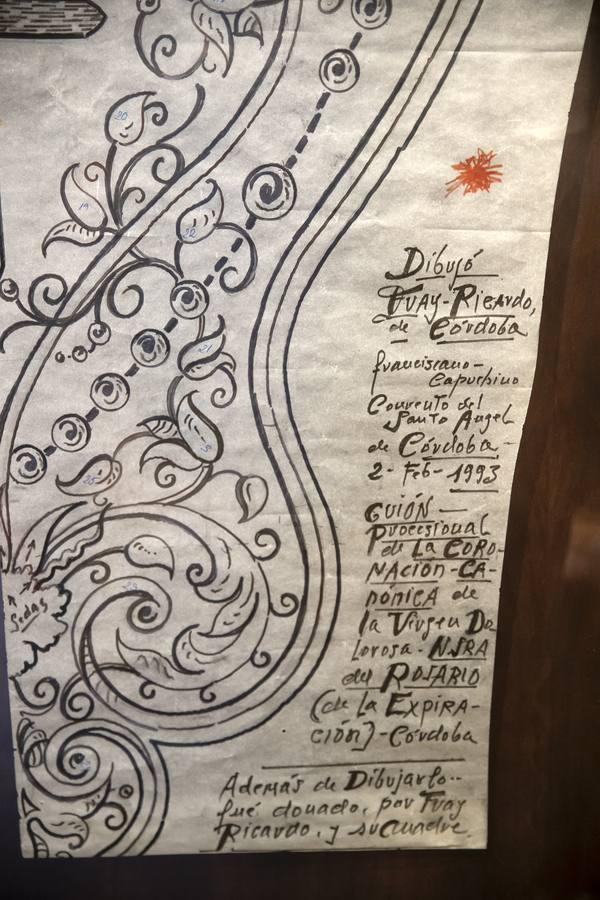 20
19
22
21
25
Sedas
Dibujó
Fray-Ricardo,
de Córdoba
franciscano-
Capuchino
Convento del
Santo Angel
de Córdoba-
2- Feb- 1993
GUIÓN-
Procesional
de La CORO-
NAción-CA-
nónica de
la Virgen Do
lorosa- NSRA
del ROSARIO
(de La EXpIRA-
ción)-Córdoba
Además de Dibujarlo--
fué donado, por Fray
Ricardo, y su Madre.